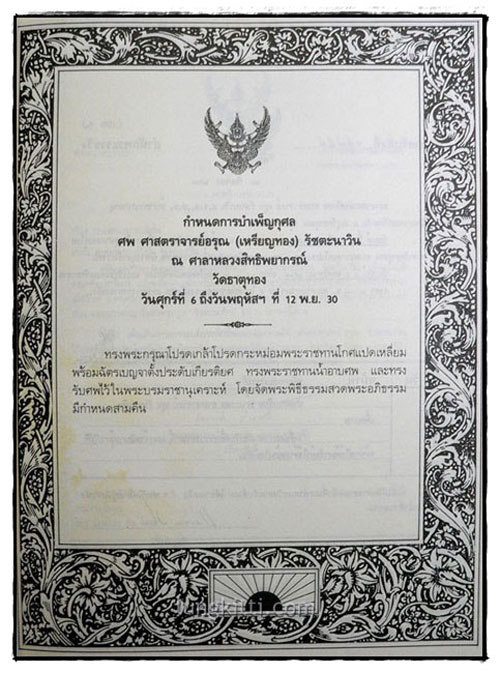 กำหนดการบำเพ็ญกุศล
ศพ ศาสตราจารย์อรุณ (เหรียญทอง) รัชตะนาวิน
ณ ศาลาหลวงสิทธิพยากรณ์
วัดธาตุทอง
วันศุกร์ที่ 6 ถึงวันพฤหัสฯ ที่ 12 พ.ย. 30
ทรงพระกรุณาโปรดเกล้าโปรดกระหม่อมพระราชทานโกศแปดเหลี่ยม
พร้อมฉัตรเบญจาตั้งประดับเกียรติยศ ทรงพระราชทานน้ำอาบศพ และทรง
รับศพไว้ในพระบรมราชานุเคราะห์ โดยจัดพระพิธีธรรมสวดพระอภิธรรม
มีกำหนดสามคืน